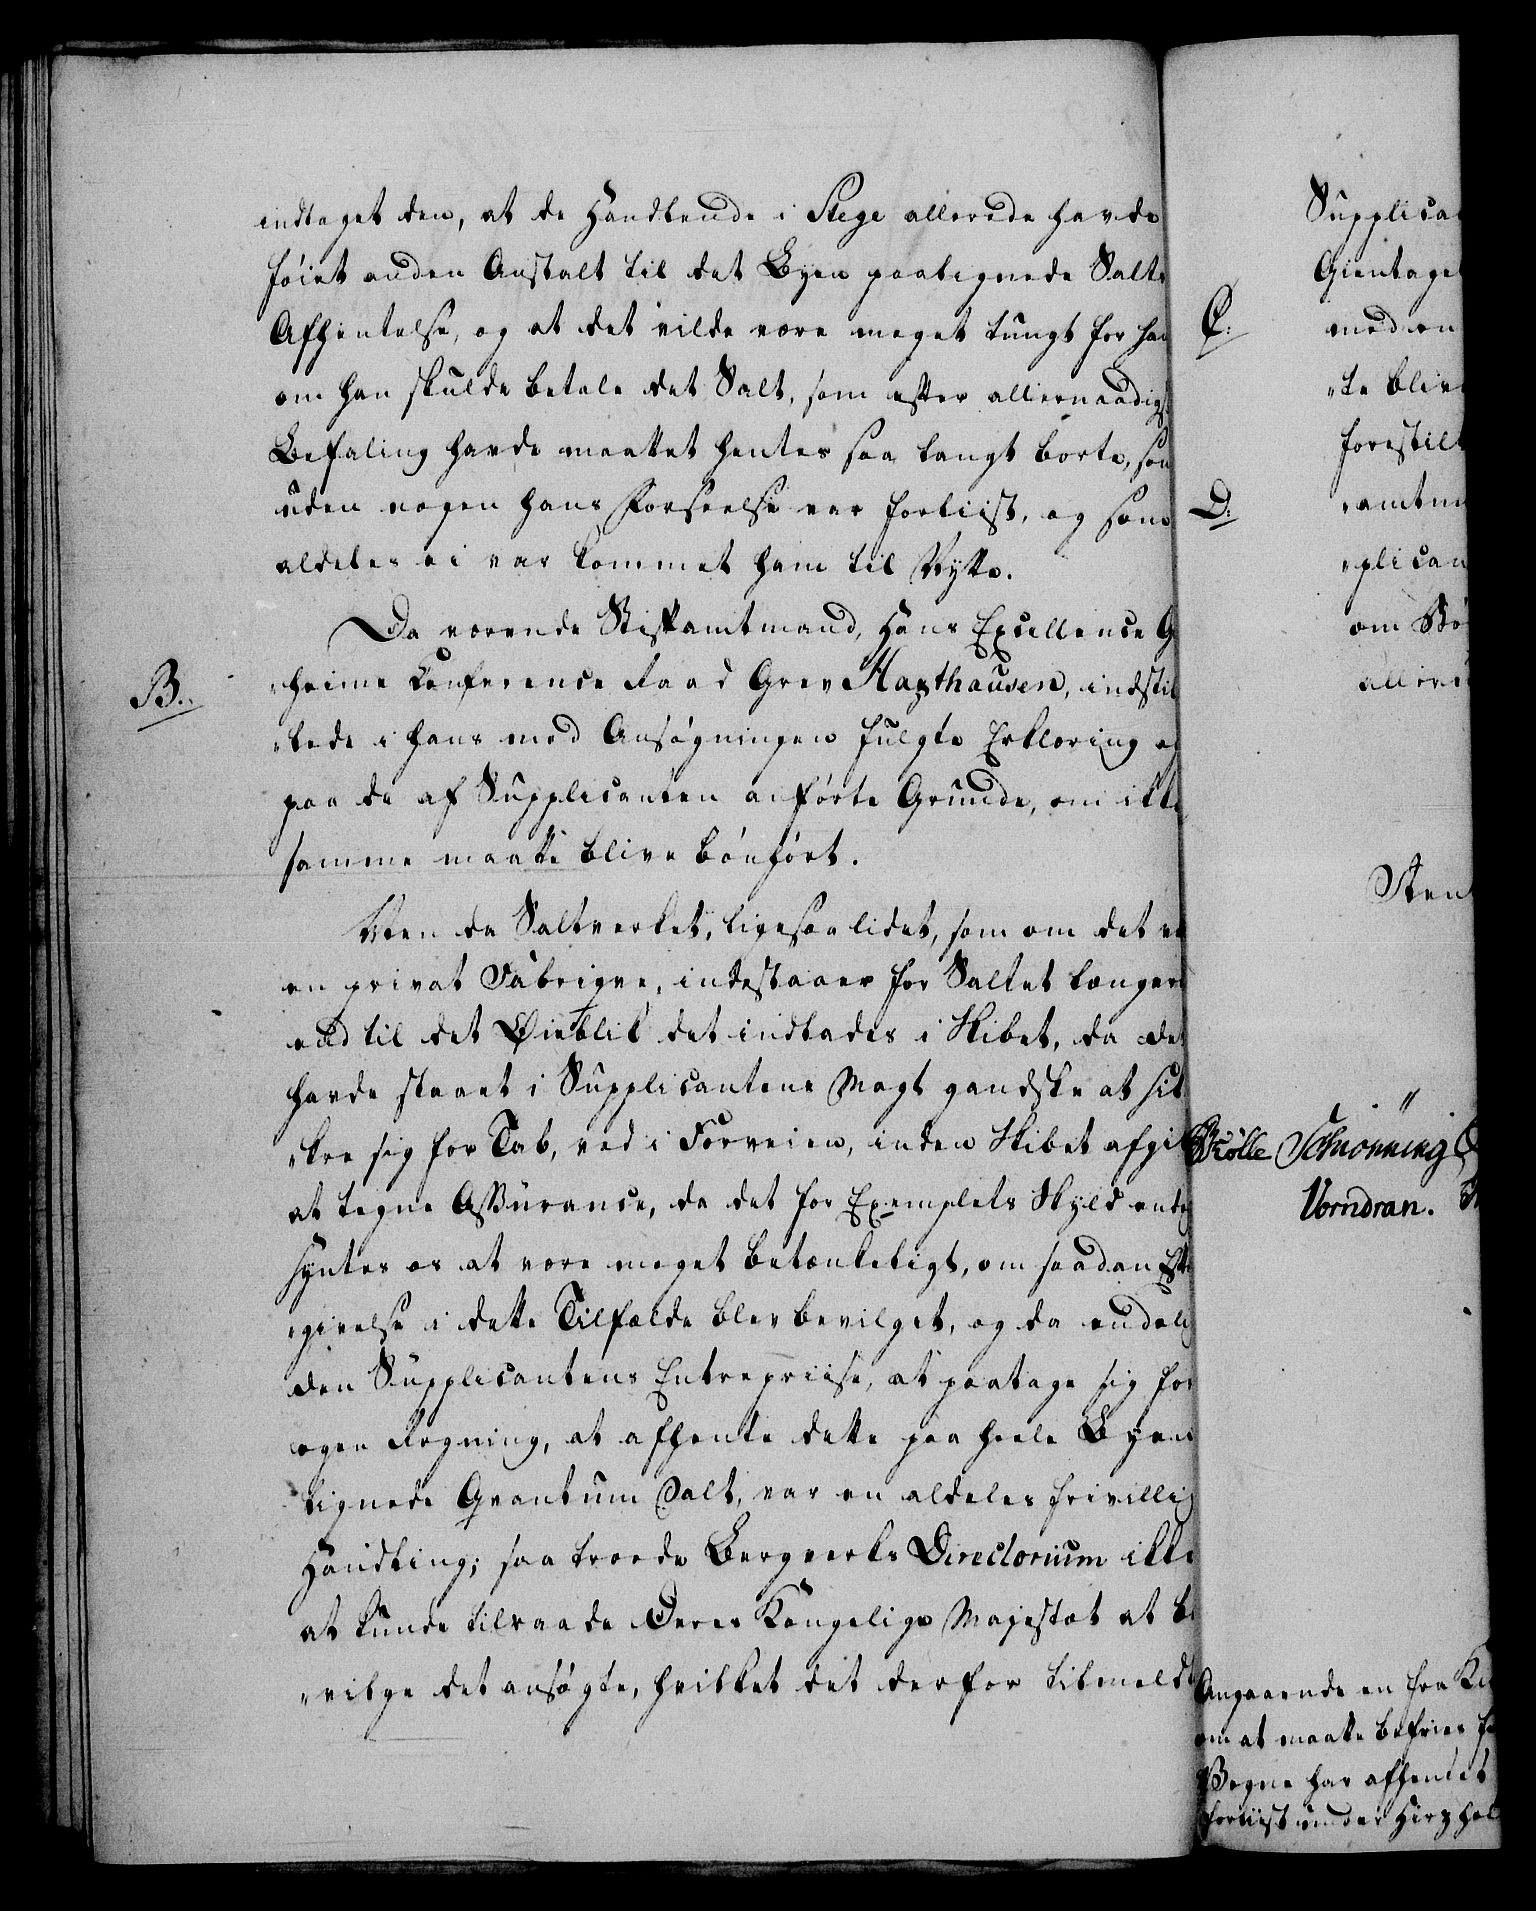 indtaget den, at de Handlende i Stege allerede havde
föiet anden Anstalt til det Byen paalignede Salts
Afhentelse, og at det vilde være meget tungt for ham
om han skulde betale det Salt, som efter allernaadigst
Befaling havde maattet hentes saa langt borte, som
uden nogen hans Forseelse var forliist, og som
aldeles ei var kommet ham til Nytte.
Da værende Stiftamtmand, Hans Excellence G
B.
heime Conference Raad Grev Haxthausen, indstil
lede i hans med Ansøgningen fulgte Erklæring og
paa de af Supplicanten anførte Grunde, om ikke
samme maatte blive bönhört.
Men da Saltverket, ligesaalidet, som om det var
en privat Fabriqve, indestaaer for Saltet længere
end til det Øieblik det indlades i Skibet, da det
havde staaet i Supplicantens Magt gandske at sik
kre sig for Tab, ved i Forveien, inden Skibet afgik
at tegne Assurance, da det for Exemplets Skyld
syntes os at være meget betænkeligt, om saadan Efter
givelse i dette Tilfælde blev bevilget, og da endelig
den Supplicantens Entrepriise, at paatage sig for
egen Regning, at afhente dette paa heele Byen
lignede Qvantum Salt, var en aldeles frivillig
Handling; saa troede Bergverks Directorium ikke
at kunde tilraade Deres Kongelige Majestæt at be
vilge det ansøgte, hvilket det derfor tilmeldte
Supplica
Gientage
C:
med en
te blive
forestil
D:
amtm
plican
om
aller
Sten
Brölle Schiönning
Vorndran.
Angaaende en fra
om at maatte befries for
Vegne har afhentet
forliist under Hirzhol